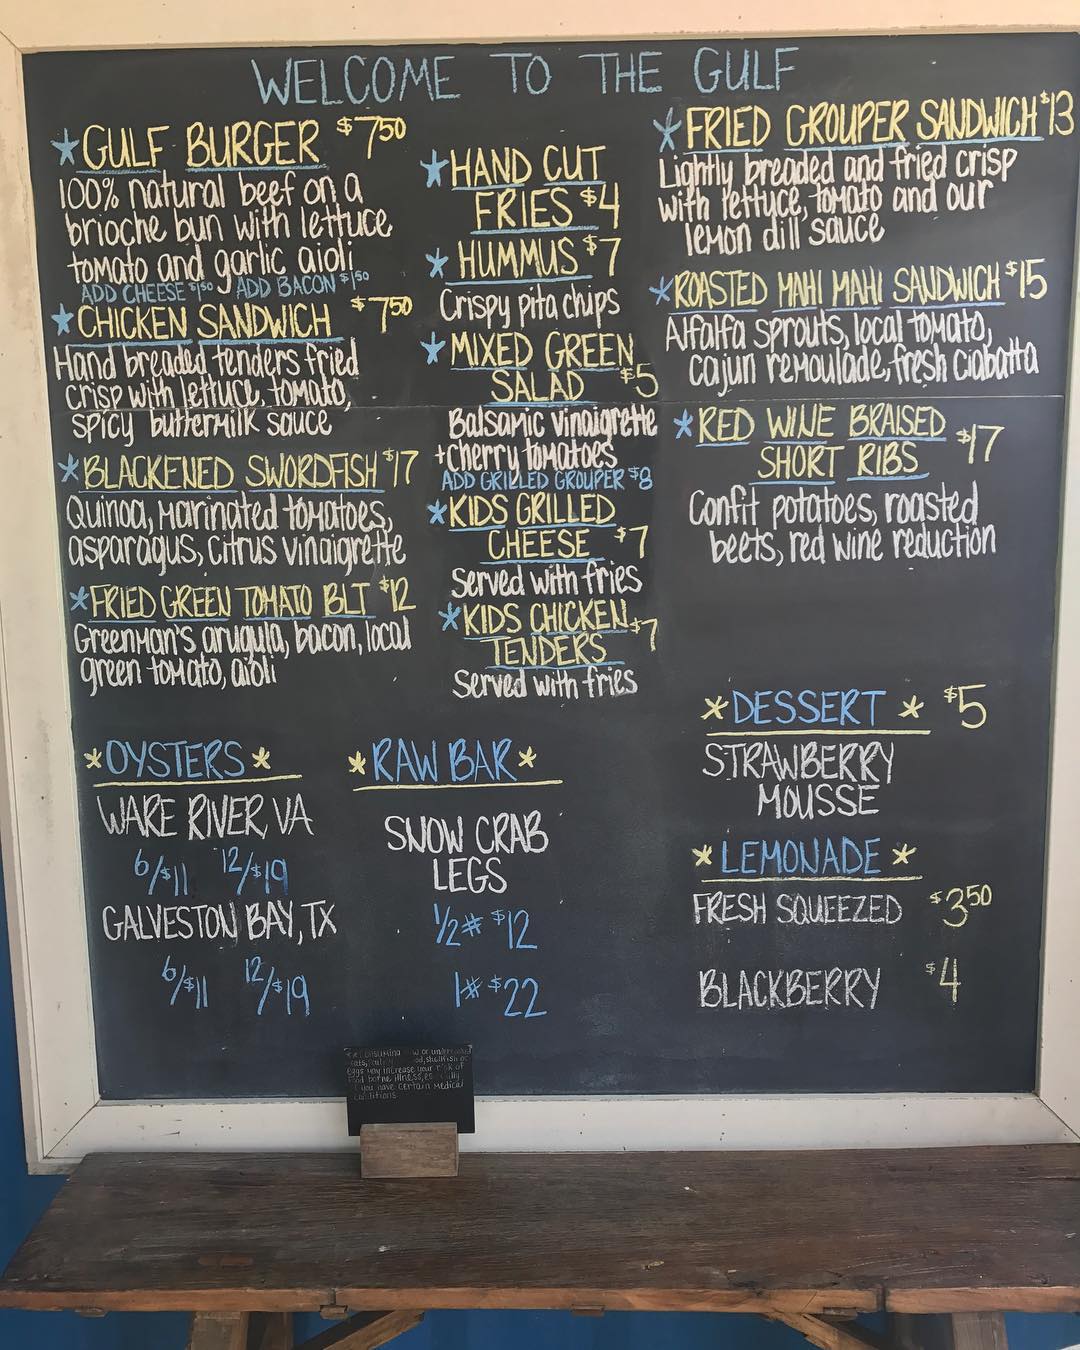 WELCOME TO THE GULF
*GULF BURGER $7.50
100% natural beef on a
brioche bun with lettuce
tomato and garlic aioli
ADD CHEESE $1.50 ADD BACON $1.50
*CHICKEN SANDWICH $7.50
Hand breaded tenders fried
crisp with lettuce, tomato,
spicy buttermilk sauce
*BLACKENED SWORDFISH $17
Quinoa, marinated tomatoes,
asparagus, citrus vinaigrette
*FRIED GREEN TOMATO BLT $12
Greenman's arugula, bacon, local
green tomato, aioli
*HAND CUT
FRIES $4
*HUMMUS $7
Crispy pita chips
*MIXED GREEN
SALAD $5
Balsamic vinaigrette
+cherry tomatoes
ADD GRILLED GROUPER $8
*KIDS GRILLED
CHEESE $7
Served with fries
*KIDS CHICKEN $7
TENDERS
Served with fries
*FRIED GROUPER SANDWICH $13
Lightly breaded and fried crisp
with lettuce, tomato and our
lemon dill sauce
*ROASTED MAHI MAHI SANDWICH $15
Alfalfa sprouts, local tomato,
cajun remoulade, fresh ciabatta
*RED WINE BRAISED
SHORT RIBS $17
Confit potatoes, roasted
beets, red wine reduction
*OYSTERS*
WARE RIVER, VA
6/$11 12/$19
GALVESTON BAY, TX
6/$11 12/$19
*RAW BAR*
SNOW CRAB
LEGS
1/2# $12
1# $22
*DESSERT* $5
STRAWBERRY
MOUSSE
*LEMONADE*
FRESH SQUEEZED $3.50
BLACKBERRY $4
shellfish or
eggs may increase your risk of
food borne illness,
if you have certain medical
conditions